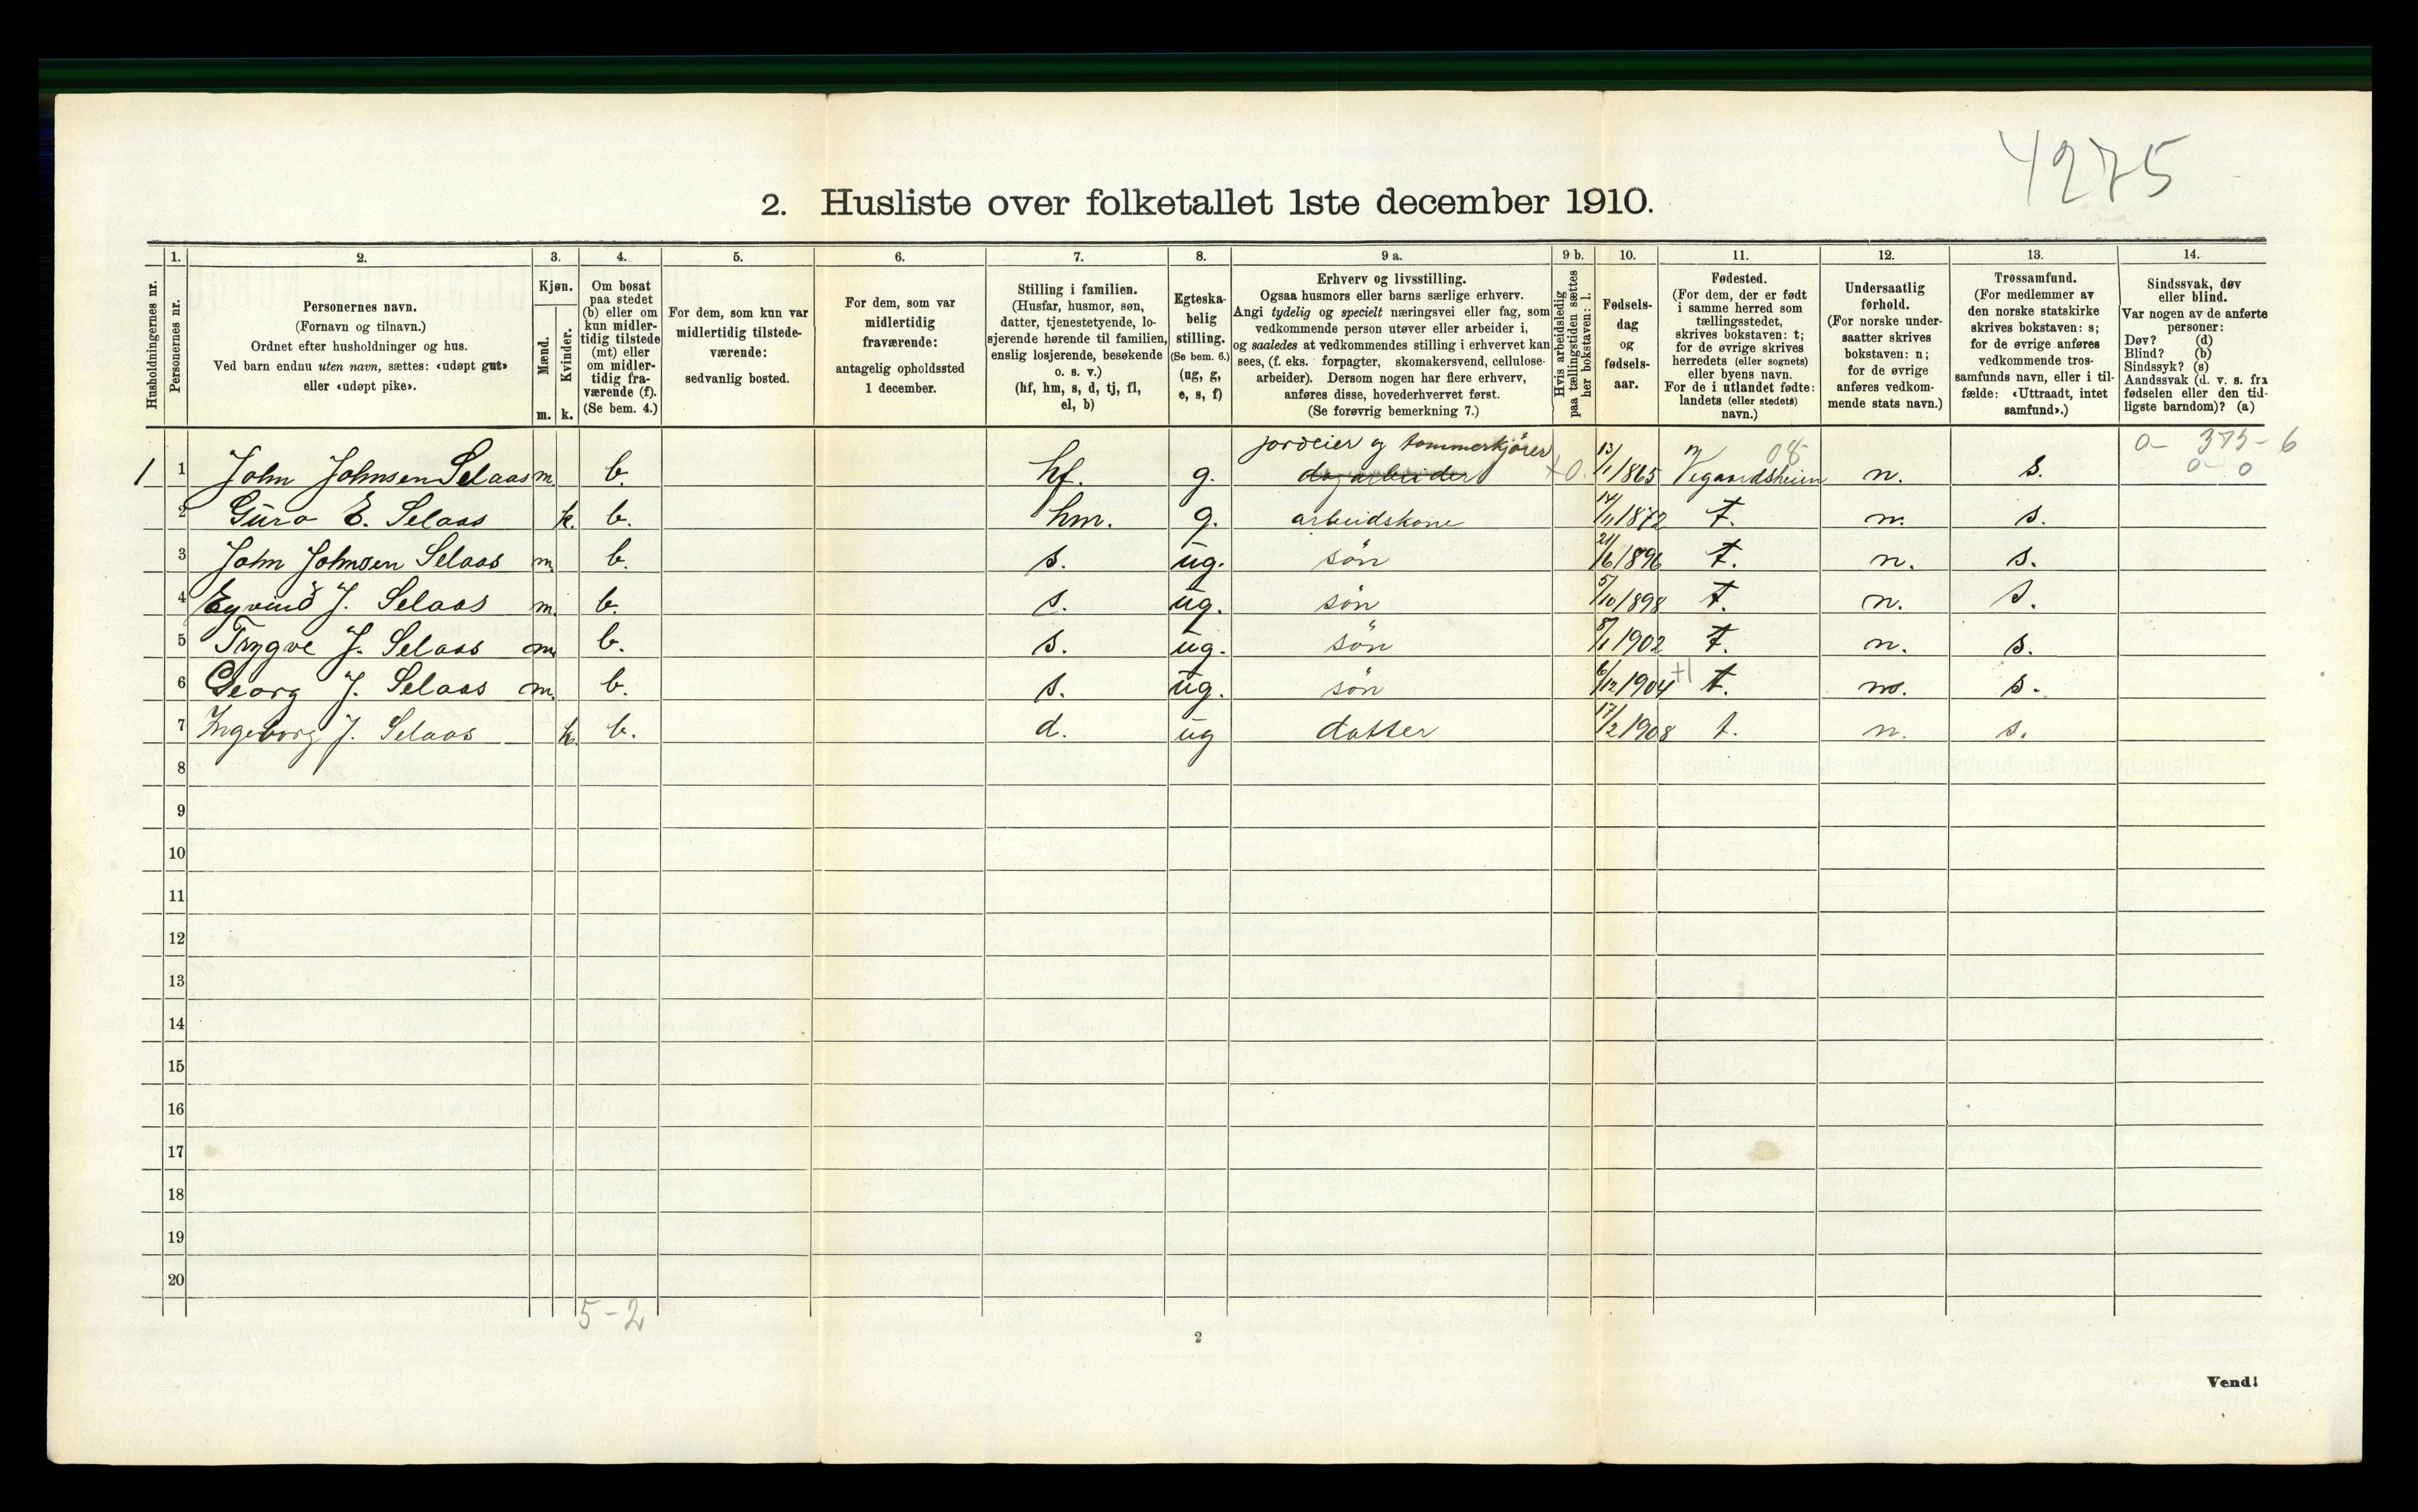 4275
2. Husliste over folketallet 1ste december 1910.
Husholdningernes nr.
1. Personernes nr.
2. Personernes navn.
(Fornavn og tilnavn.)
Ordnet efter husholdninger og hus.
Ved barn endnu uten navn, sættes: «udøpt gut»
eller «udøpt pike».
3. Kjøn.
Mænd. m.
Kvinder. k.
4. Om bosat
paa stedet
(b) eller om
kun midler-
tidig tilstede
(mt) eller
om midler-
tidig fra-
værende (f).
(Se bem. 4.)
5. For dem, som kun var
midlertidig tilstede-
værende:
sedvanlig bosted.
6. For dem, som var
midlertidig
fraværende:
antagelig opholdssted
1 december.
7. Stilling i familien.
(Husfar, husmor, søn,
datter, tjenestetyende, lo-
sjerende hørende til familien,
enslig losjerende, besøkende
o. s. v.)
(hf, hm, s, d, tj, fl,
el, b)
8. Egteska-
belig
stilling.
(Se bem. 6.)
(ug, g,
e, s, f)
9 a. Erhverv og livsstilling.
Ogsaa husmors eller barns særlige erhverv.
Angi tydelig og specielt næringsvei eller fag, som
vedkommende person utøver eller arbeider i,
og saaledes at vedkommendes stilling i erhvervet kan
sees, (f. eks. forpagter, skomakersvend, cellulose-
arbeider). Dersom nogen har flere erhverv,
anføres disse, hovederhvervet først.
(Se forøvrig bemerkning 7.)
9 b. Hvis arbeidsledig
paa tællingstiden sættes
her bokstaven: l.
10. Fødsels-
dag
og
fødsels-
aar.
11. Fødested.
(For dem, der er født
i samme herred som
tællingsstedet,
skrives bokstaven: t;
for de øvrige skrives
herredets (eller sognets)
eller byens navn.
For de i utlandet fødte:
landets (eller stedets)
navn.)
12. Undersaatlig
forhold.
(For norske under-
saatter skrives
bokstaven: n;
for de øvrige
anføres vedkom-
mende stats navn.)
13. Trossamfund.
(For medlemmer av
den norske statskirke
skrives bokstaven: s;
for de øvrige anføres
vedkommende tros-
samfunds navn, eller i til-
fælde: «Uttraadt, intet
samfund».)
14. Sindssvak, døv
eller blind.
Var nogen av de anførte
personer:
Døv? (d)
Blind? (b)
Sindssyk? (s)
Aandssvak (d. v. s. fra
fødselen eller den tid-
ligste barndom)? (a)
jordeier og tømmerkjører 08 0 - 375 - 6
1 1 John Johnsen Selaas m. b. hf. g. dagarbeider 13/1 1865 Vegaardsheien n. s. 0 - 0
2 Guro E. Selaas k. b. hm. g. arbeidskone 14/11 1872 t. n. s.
3 John Johnsen Selaas m. b. s. ug. søn 21/6 1896 t. n. s.
4 Eyvind J. Selaas m. b. s. ug. søn 5/10 1898 t. n. s.
5 Trygve J. Selaas m. b. s. ug. søn 8/1 1902 t. n. s.
6 Georg J. Selaas m. b. s. ug. søn 6/12 1904 +1 t. n. s.
7 Ingeborg J. Selaas k. b. d. ug datter 17/2 1908 t. n. s.
8
9
10
11
12
13
14
15
16
17
18
19
20
5 - 2
2
Vend!